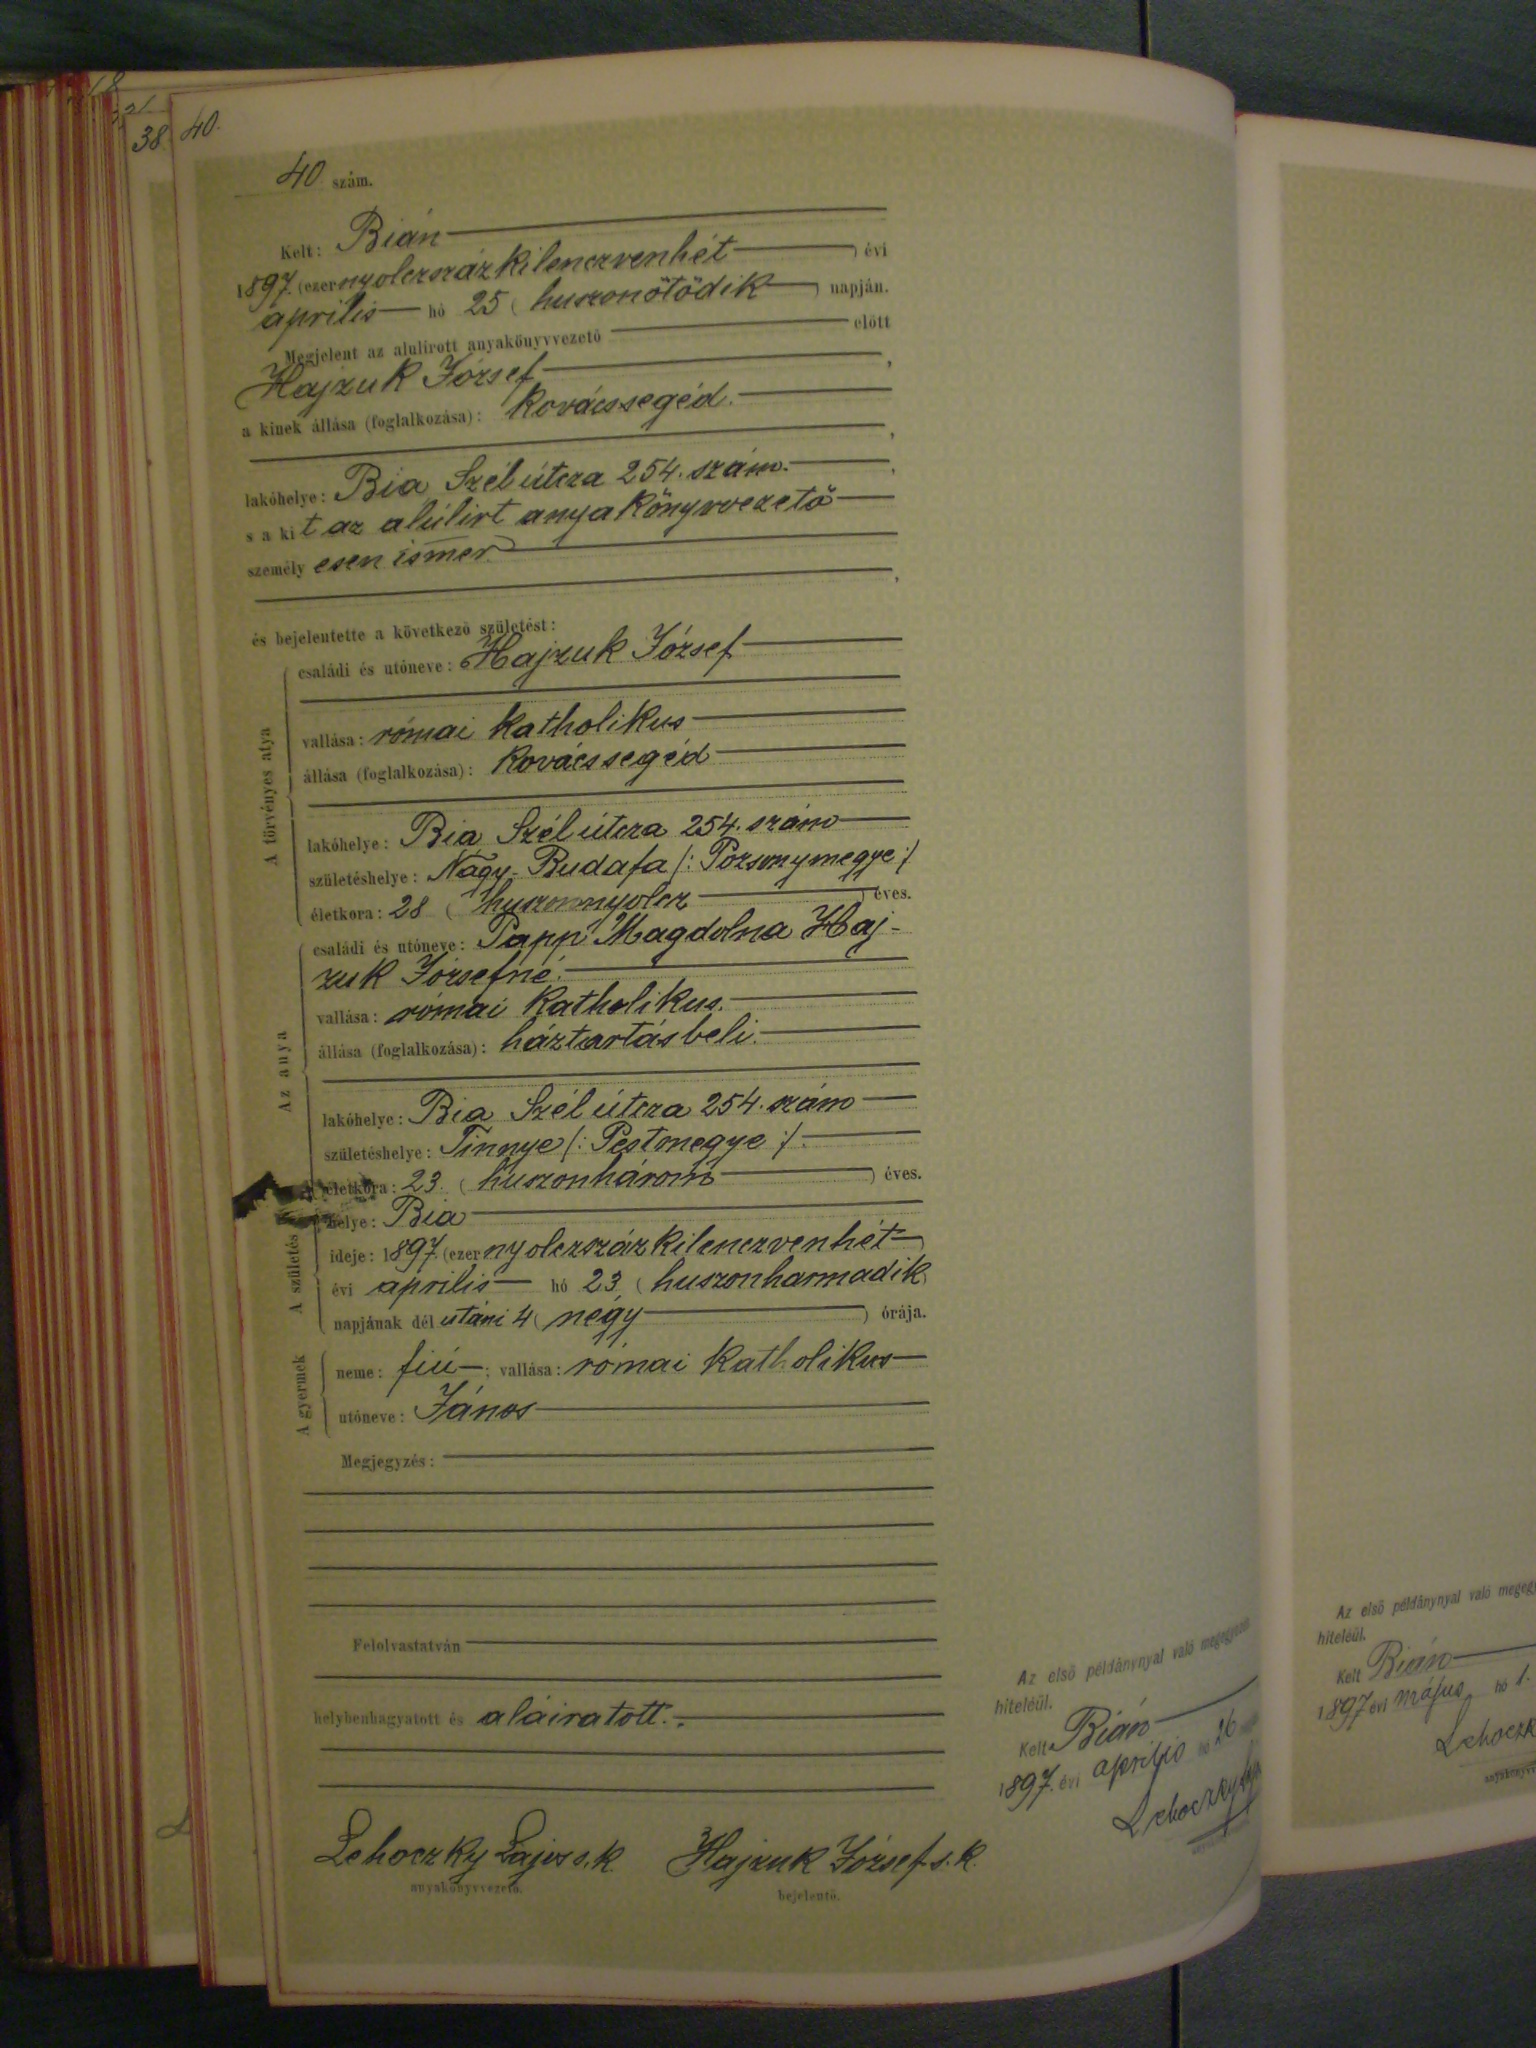 18
21
38.
40.
40 szám.
Kelt: Bián
1897. (ezernyolczszázkilenczvenhét) évi
április hó 25 (huszonötödik) napján.
Megjelent az alulirott anyakönyvvezető előtt
Hajzuk József,
a kinek állása (foglalkozása): kovácssegéd.
,
lakóhelye: Bia Szél útcza 254. szám.,
s a kit az alúlirt anyakönyvvezető
személyesen ismer.
,
és bejelentette a következő születést:
A törvényes atya
családi és utóneve: Hajzuk József
vallása: római katholikus
állása (foglalkozása): kovácssegéd
lakóhelye: Bia Szél útcza 254. szám
születéshelye: Nagy-Budafa /: Pozsonymegye :/
életkora: 28 (huszonnyolcz) éves.
Az anya
családi és utóneve: Papp Magdolna Haj-
zuk Józsefné.
vallása: római katholikus.
állása (foglalkozása): háztartásbeli.
lakóhelye: Bia Szél útcza 254. szám
születéshelye: Tinnye /: Pestmegye :/.
életkora: 23 (huszonhárom) éves.
A születés
helye: Bia
ideje: 1897. (ezernyolczszázkilenczvenhét)
évi április hó 23 (huszonharmadik)
napjának dél utáni 4 (négy) órája.
A gyermek
neme: fiú; vallása: római katholikus
utóneve: János
Megjegyzés:
Felolvastatván
helybenhagyatott és aláiratott.
Lehoczky Lajos s.k. Hajzuk József s.k.
anyakönyvvezető. bejelentő.
Az első példánynyal való megegyezés
hiteléül.
Kelt Bián
1897. évi április hó 26
Lehoczky
Az első példánynyal való
hiteléül.
Kelt Bián
1897 évi május hó 1.